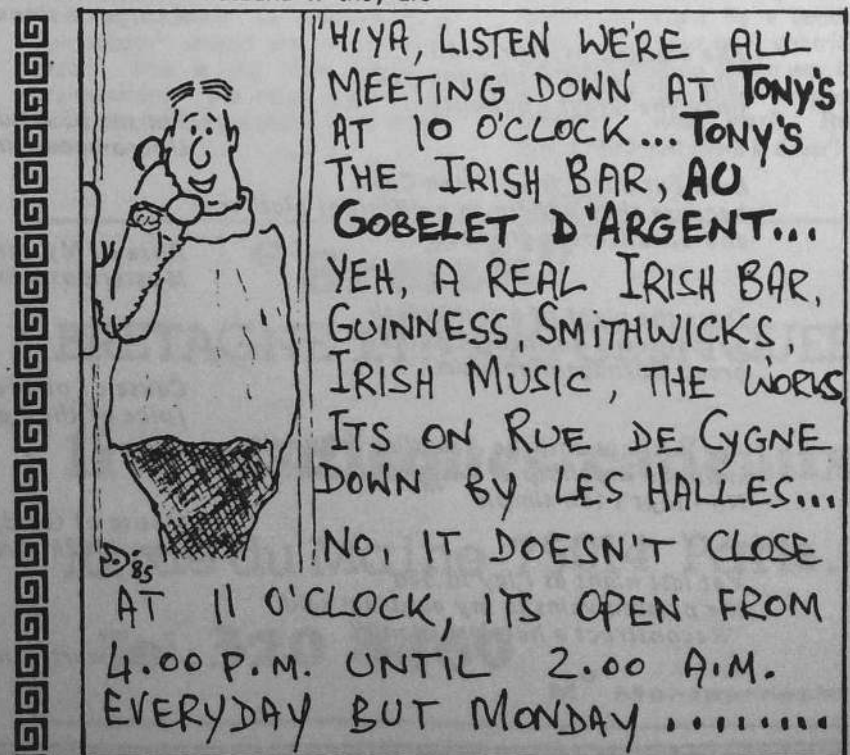 "HIYA, LISTEN WE'RE ALL
MEETING DOWN AT TONY'S
AT 10 O'CLOCK... TONY'S
THE IRISH BAR, AU
GOBELET D'ARGENT...
YEH, A REAL IRISH BAR,
GUINNESS, SMITHWICKS,
IRISH MUSIC, THE WORKS
ITS ON RUE DE CYGNE
DOWN BY LES HALLES...
NO, IT DOESN'T CLOSE
AT 11 O'CLOCK, ITS OPEN FROM
4.00 P.M. UNTIL 2.00 A.M.
EVERYDAY BUT MONDAY .........
D '85